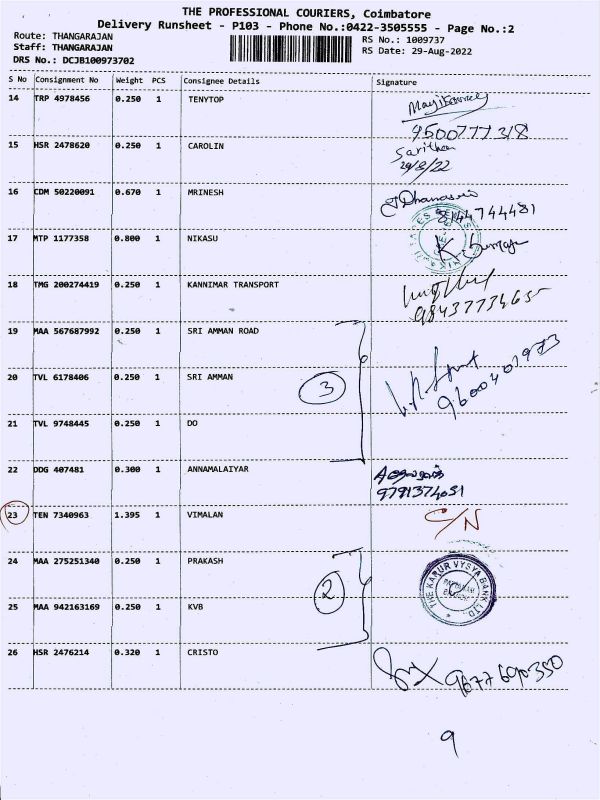 THE PROFESSIONAL COURIERS, Coimbatore
Delivery Runsheet - P103 - Phone No.:0422-3505555 - Page No.:2
Route: THANGARAJAN RS No.: 1009737
Staff: THANGARAJAN RS Date: 29-Aug-2022
DRS No.: DCJB100973702
S No Consignment No Weight PCS Consignee Details Signature
14 TRP 4978456 0.250 1 TENYTOP
9500777318
15 HSR 2478620 0.250 1 CAROLIN Saritha
29/8/22
16 CDM 50220091 0.670 1 MRINESH
8144744481
17 MTP 1177358 0.800 1 NIKASU
18 TMG 200274419 0.250 1 KANNIMAR TRANSPORT
9843773465
19 MAA 567687992 0.250 1 SRI AMMAN ROAD
20 TVL 6178406 0.250 1 SRI AMMAN 3
21 TVL 9748445 0.250 1 DO
22 DDG 407481 0.300 1 ANNAMALAIYAR
9791374051
23 TEN 7340963 1.395 1 VIMALAN C/N
24 MAA 275251340 0.250 1 PRAKASH
THE KARUR VYSYA BANK LTD
2
25 MAA 942163169 0.250 1 KVB
26 HSR 2476214 0.320 1 CRISTO
9677690350
9